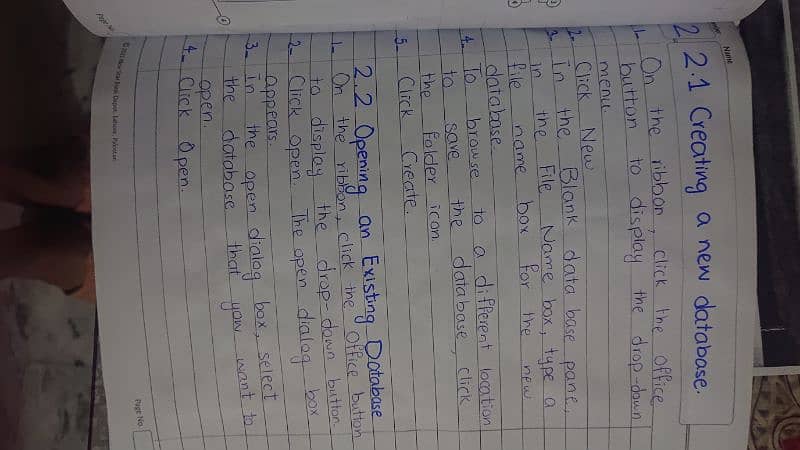 Name
2. 2.1 Creating a new database.
1- On the ribbon, click the Office
button to display the drop-down
menu
2- Click New
3- in the Blank data base pane,
in the File Name box, type a
file name box for the new
database.
4- To browse to a different location
to save the database, click
the folder icon.
5- Click Create.
2.2 Opening an Existing Database
1- On the ribbon, click the Office button
to display the drop-down button.
2- Click open. The open dialog box
appears.
3- in the open dialog box, select
the database that you want to
open.
4- Click Open.
Page No.